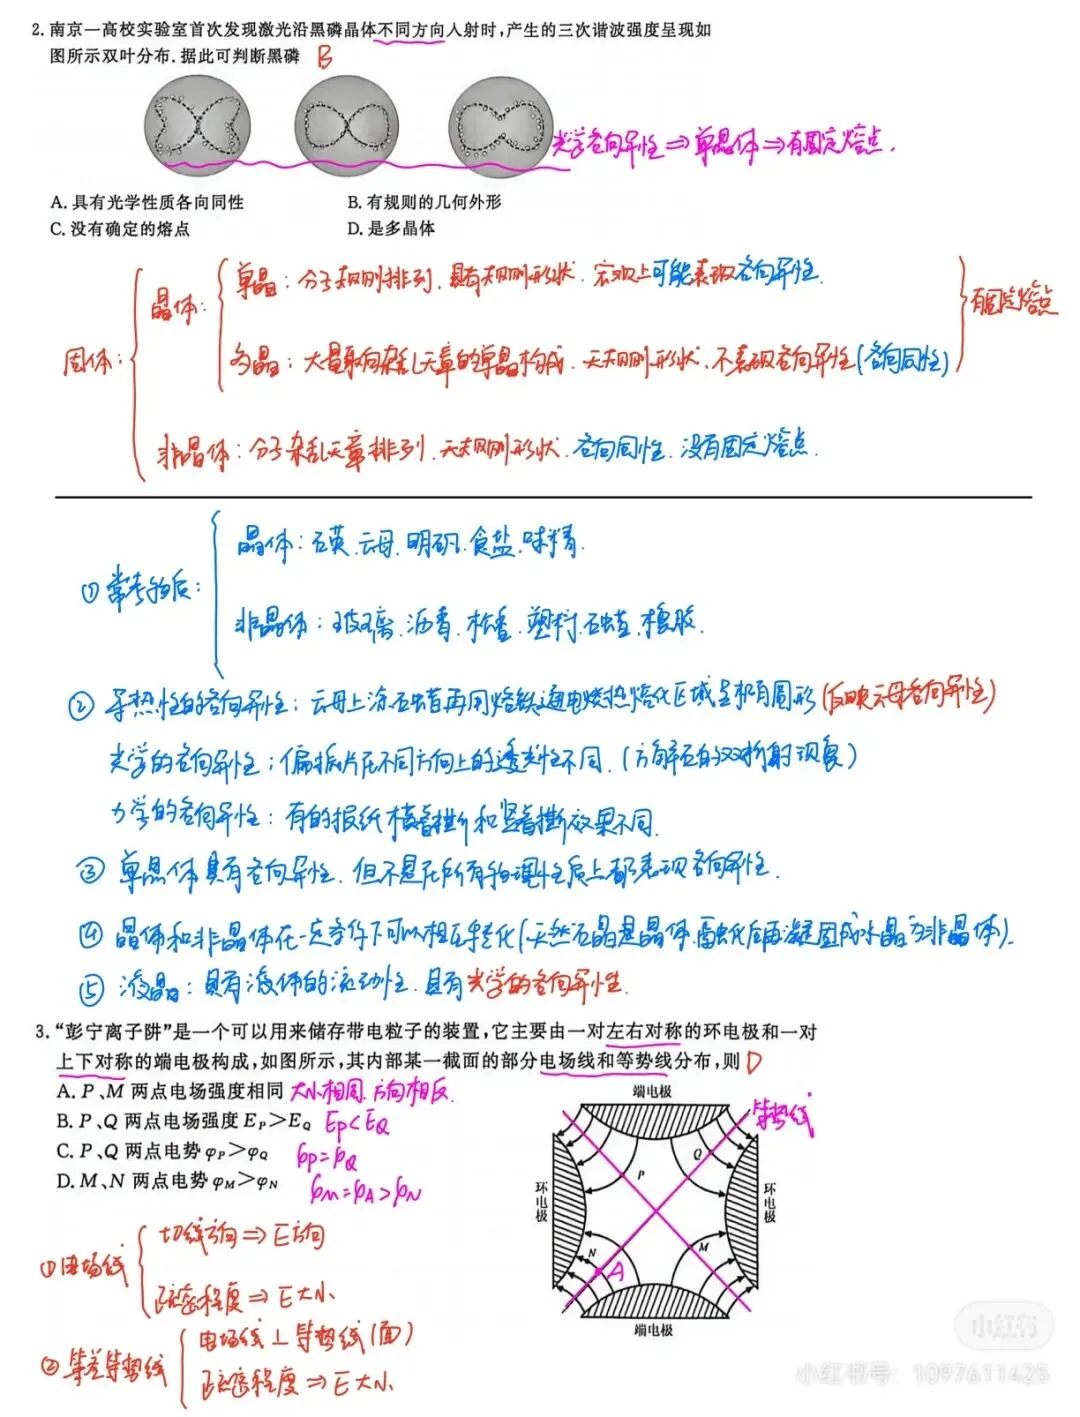 2. 南京一高校实验室首次发现激光沿黑磷晶体不同方向入射时,产生的三次谐波强度呈现如
图所示双叶分布. 据此可判断黑磷 B
光学各向异性⇒单晶体⇒有固定熔点.
A. 具有光学性质各向同性 B. 有规则的几何外形
C. 没有确定的熔点 D. 是多晶体
固体:
晶体:
单晶: 分子规则排列. 具有规则形状. 宏观上可能表现各向异性.
多晶: 大量取向杂乱无章的单晶构成. 无规则形状. 不表现各向异性(各向同性)
有固定熔点
非晶体: 分子杂乱无章排列. 无规则形状. 各向同性. 没有固定熔点.
① 常考物质:
晶体: 石英. 云母. 明矾. 食盐. 味精.
非晶体: 玻璃. 沥青. 松香. 塑料. 石蜡. 橡胶.
② 导热性的各向异性: 云母上涂石蜡再用烙铁通电烧热熔化区域呈椭圆形(反映云母各向异性)
光学的各向异性: 偏振片在不同方向上的透光性不同. (方解石的双折射现象)
力学的各向异性: 有的报纸横着撕和竖着撕效果不同.
③ 单晶体具有各向异性. 但不是在所有物理性质上都表现各向异性.
④ 晶体和非晶体在一定条件下可以相互转化(天然石晶是晶体.融化后再凝固成水晶为非晶体).
⑤ 液晶: 具有液体的流动性. 具有光学的各向异性.
3. “彭宁离子阱”是一个可以用来储存带电粒子的装置,它主要由一对左右对称的环电极和一对
上下对称的端电极构成,如图所示,其内部某一截面的部分电场线和等势线分布,则 D
A. P、M 两点电场强度相同 大小相同. 方向相反.
B. P、Q 两点电场强度 EP>EQ EP<EQ
C. P、Q 两点电势 φP>φQ φP=φQ
D. M、N 两点电势 φM>φN φM=φA>φN
端电极
等势线
Q
P
环电极
环电极
N
M
A
端电极
① 电场线
切线方向⇒E方向
疏密程度⇒E大小.
② 等差等势线
电场线⊥等势线(面)
疏密程度⇒E大小.
小红书
小红书号: 1097611425